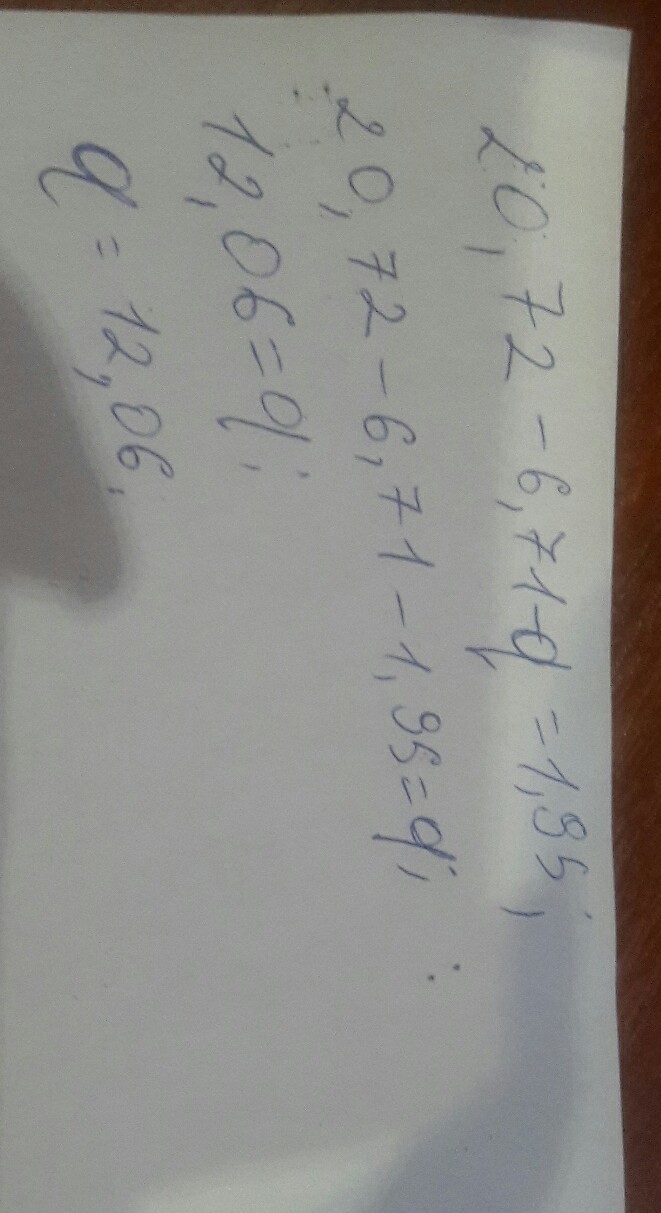 20,72-6,71-q=1,95;
20,72-6,71-1,95=q;
12,06=q;
q=12,06.